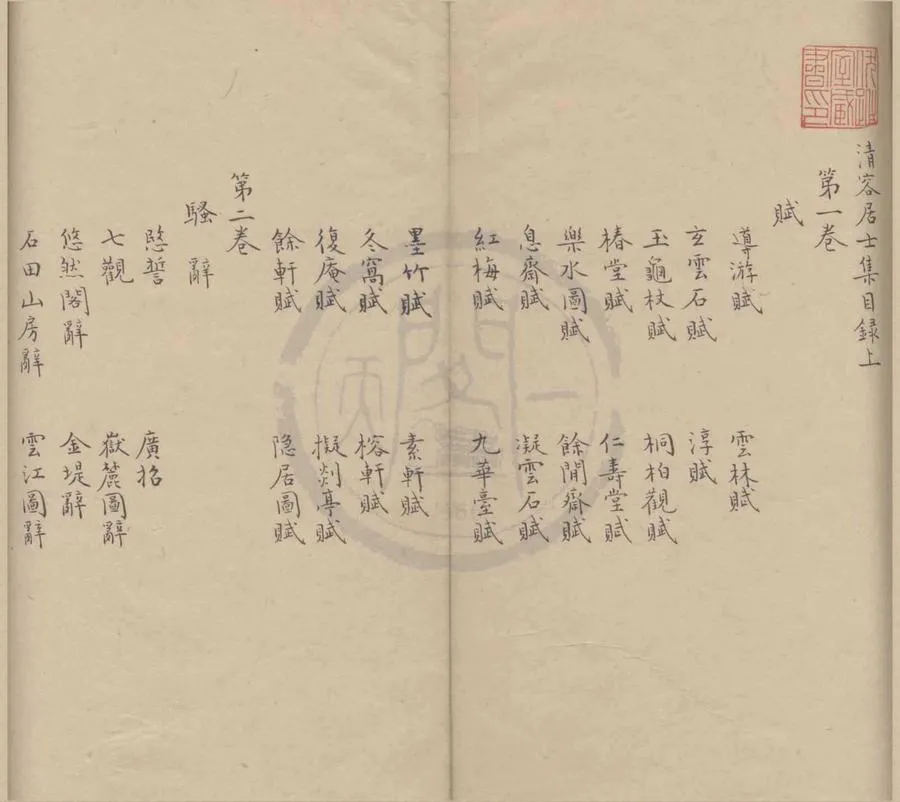 清容居士集目録上
第一卷
賦
導游賦 雲林賦
玄雲石賦 淳賦
玉龜杖賦 桐柏觀賦
椿堂賦 仁壽堂賦
樂水圖賦 餘閒齋賦
息齋賦 凝雲石賦
紅梅賦 九華臺賦
墨竹賦 素軒賦
冬窩賦 榕軒賦
復庵賦 擬剡亭賦
餘軒賦 隐居圖賦
第二卷
騷辭
愍誓 廣招
七觀 嶽麓圖辭
悠然閣辭 金堤辭
石田山房辭 雲江圖辭
天一閣